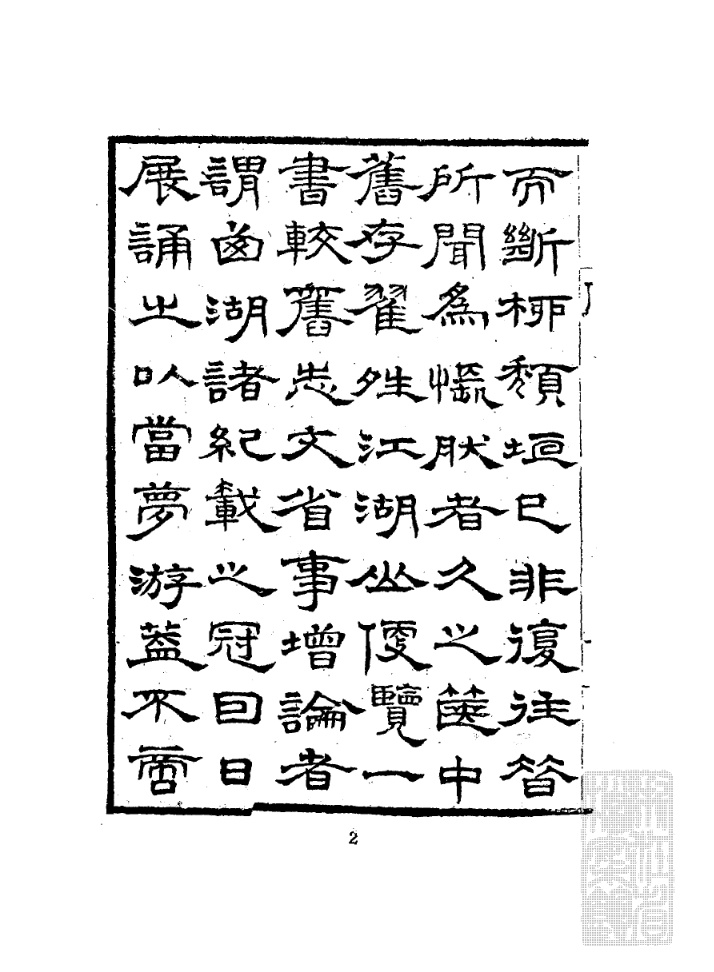 而斷桺頽垣已非復往昝
所聞為悵肰者久之篋中
舊存翟姓江湖山便覽一
書較舊志文省事增論者
謂囪湖諸紀載之冠曰日
展誦之以當夢游葢不啻
2